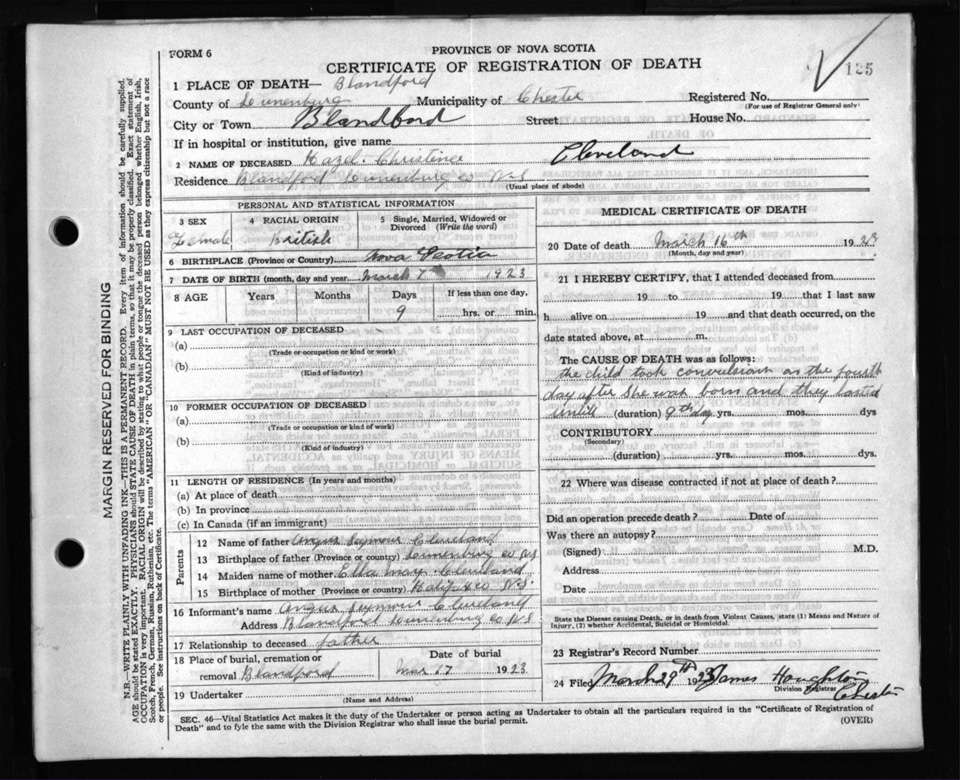 FORM 6
PROVINCE OF NOVA SCOTIA
CERTIFICATE OF REGISTRATION OF DEATH
125
1 PLACE OF DEATH— Blandford
County of Lunenburg Municipality of Chester Registered No.
(For use of Registrar General only)
City or Town Blandford Street House No.
If in hospital or institution, give name
2 NAME OF DECEASED Hazel Christine Cleveland
Residence Blandford Lunenburg co N.S
(Usual place of abode)
PERSONAL AND STATISTICAL INFORMATION
3 SEX 4 RACIAL ORIGIN 5 Single, Married, Widowed or Divorced (Write the word)
Female British
6 BIRTHPLACE (Province or Country) Nova Scotia
7 DATE OF BIRTH (month, day and year) March 7th 1923
8 AGE Years Months Days If less than one day,
9 hrs. or min.
9 LAST OCCUPATION OF DECEASED
(a)
(Trade or occupation or kind or work)
(b)
(Kind of industry)
10 FORMER OCCUPATION OF DECEASED
(a)
(Trade or occupation or kind of work)
(b)
(Kind of industry)
11 LENGTH OF RESIDENCE (In years and months)
(a) At place of death
(b) In province
(c) In Canada (if an immigrant)
Parents
12 Name of father Angus Seymour Cleveland
13 Birthplace of father (Province or country) Lunenburg co NS
14 Maiden name of mother Etta May Cleveland
15 Birthplace of mother (Province or country) Halifax co N.S.
16 Informant's name Angus Seymour Cleveland
Address Blandford Lunenburg co NS
17 Relationship to deceased father
18 Place of burial, cremation or removal Blandford Date of burial Mar 17 1923
19 Undertaker
(Name and Address)
MEDICAL CERTIFICATE OF DEATH
20 Date of death March 16th 1923
(Month, day and year)
21 I HEREBY CERTIFY, that I attended deceased from
19 to 19 that I last saw
h alive on 19 and that death occurred, on the
date stated above, at m.
The CAUSE OF DEATH was as follows:
the child took convulsions on the fourth
day after she was born and they lasted
untill (duration) 9th day yrs. mos. dys
CONTRIBUTORY
(Secondary)
(duration) yrs. mos. dys.
22 Where was disease contracted if not at place of death?
Did an operation precede death? Date of
Was there an autopsy?
(Signed) M.D.
Address
Date
State the Disease causing Death, or in death from Violent Causes, state (1) Means and Nature of
Injury, (2) whether Accidental, Suicidal or Homicidal.
23 Registrar's Record Number
24 Filed March 29th 1923 James Houghton
Division Registrar
Chester
SEC. 46—Vital Statistics Act makes it the duty of the Undertaker or person acting as Undertaker to obtain all the particulars required in the "Certificate of Registration of
Death" and to fyle the same with the Division Registrar who shall issue the burial permit. (OVER)
MARGIN RESERVED FOR BINDING
N.B.—WRITE PLAINLY WITH UNFADING INK—THIS IS A PERMANENT RECORD. Every item of information should be carefully supplied.
AGE should be stated EXACTLY. PHYSICIANS should STATE CAUSE OF DEATH in plain terms, so that it may be properly classified. Exact statement of
OCCUPATION is very important. RACIAL ORIGIN will be described by stating to what people or tongue the deceased person belonged whether English, Irish,
Scotch, French, German, Russian, Ruthenian, etc. The terms "AMERICAN" OR "CANADIAN" MUST NOT BE USED as they express citizenship but not a race
or people. See instructions on back of Certificate.